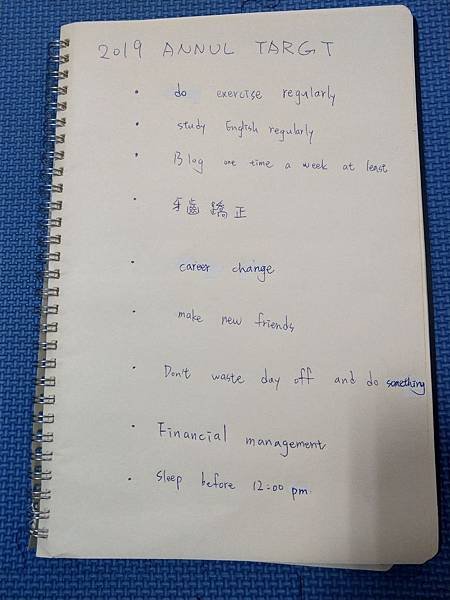 2019 ANNUL TARGT
• do exercise regularly
• study English regularly
• Blog one time a week at least
• 牙齒矯正
• career change
• make new friends
• Don't waste day off and do something
• Financial management
• Sleep before 12:00 pm.